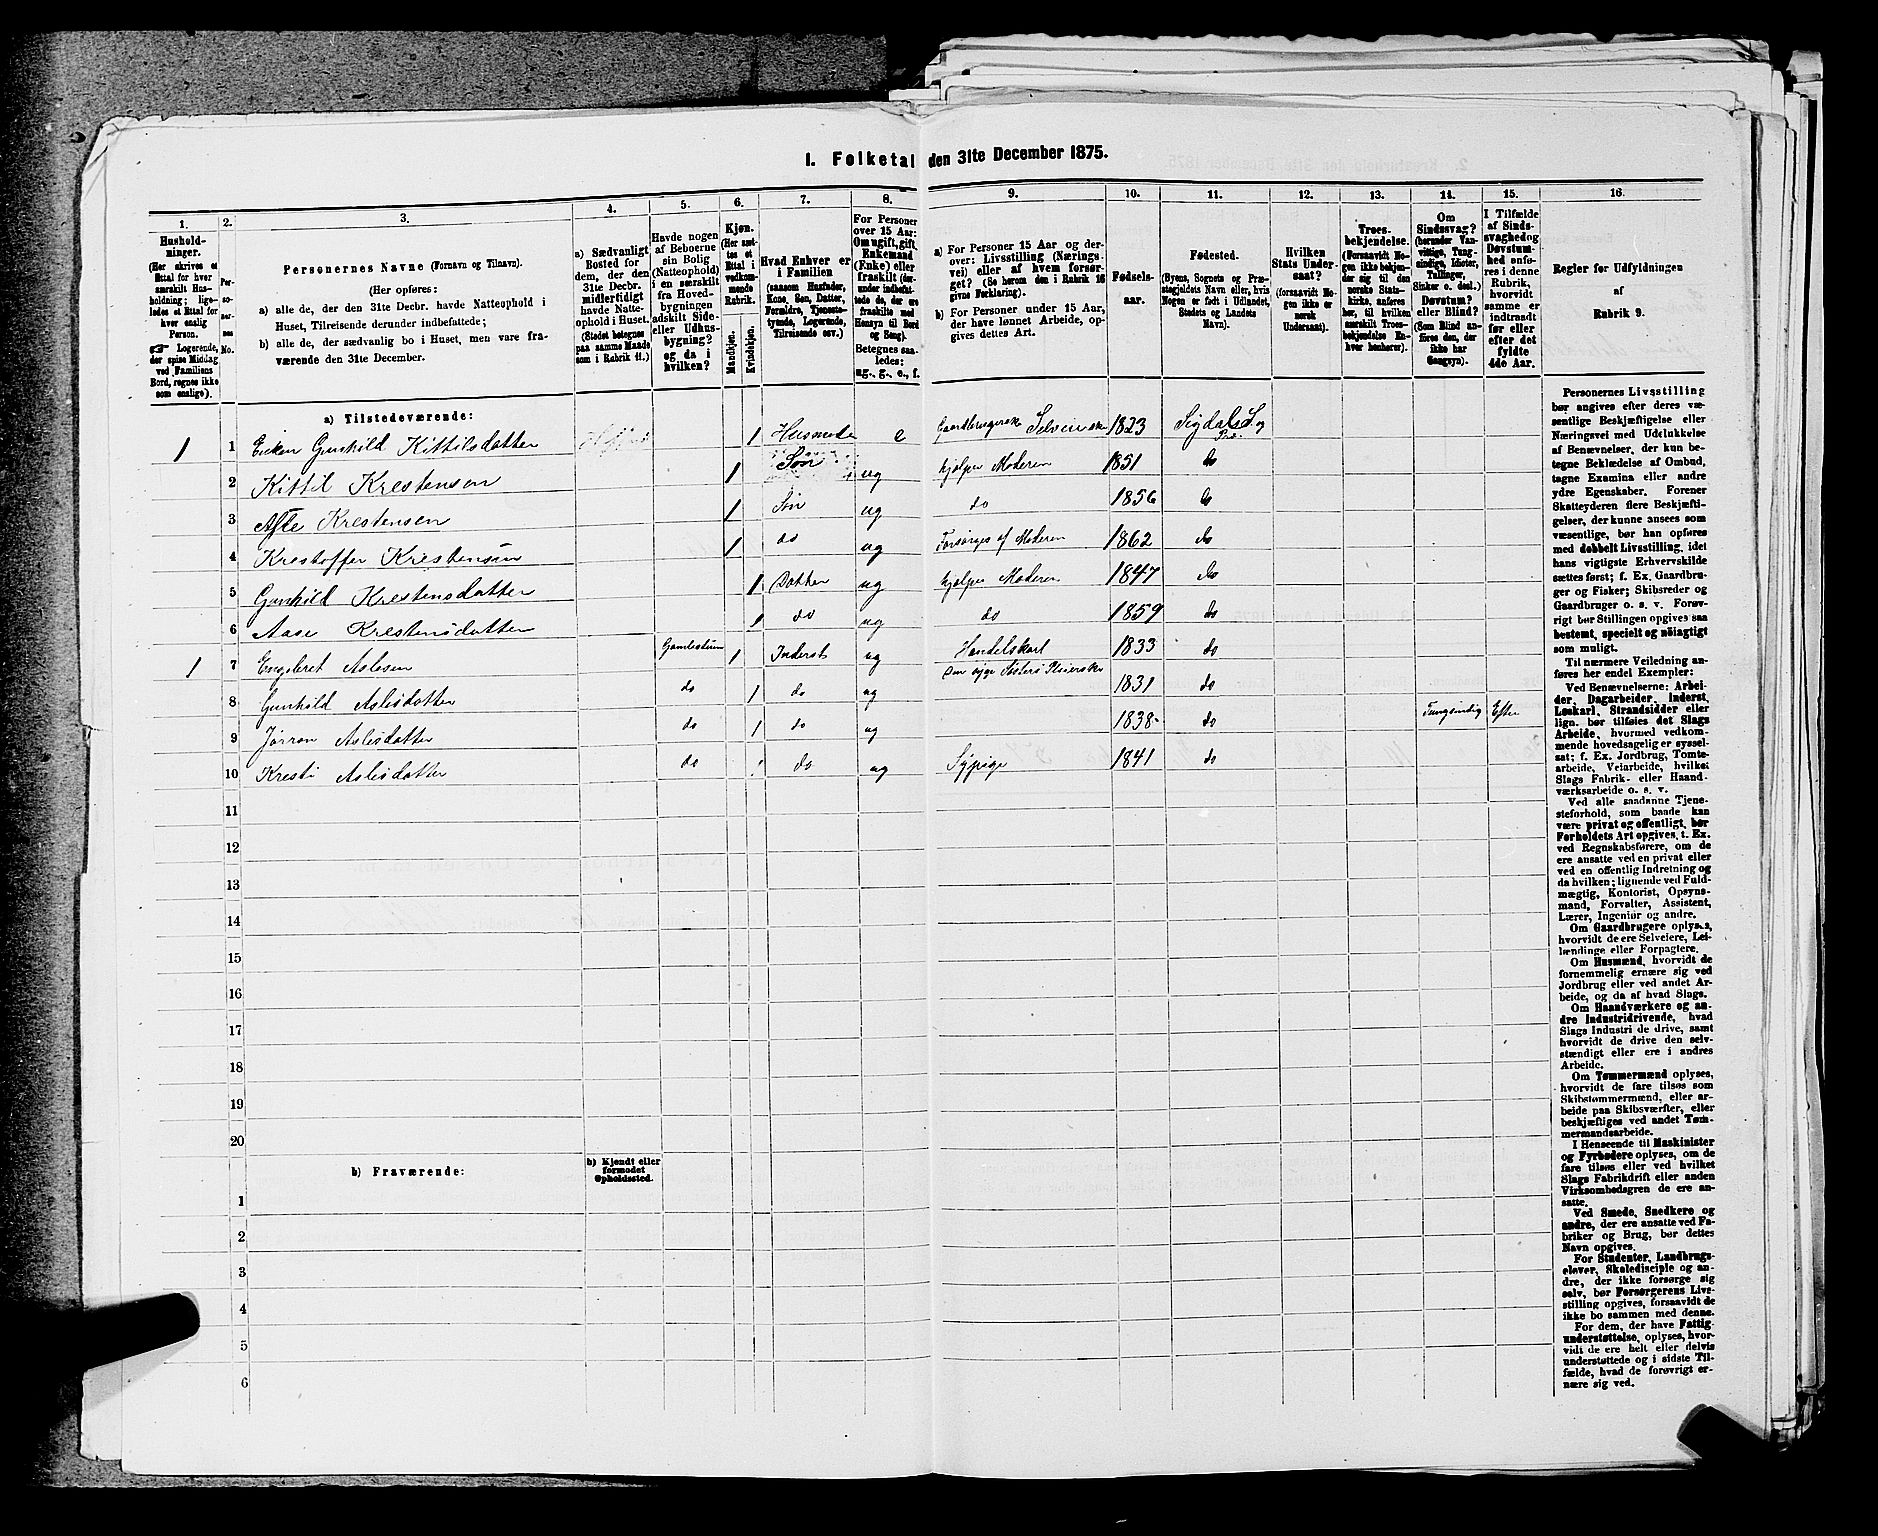 1. Folketal den 31te December 1875.
1. 2. 3. 4. 5. 6. 7. 8. 9. 10. 11. 12. 13. 14. 15. 16.
Husholdninger.
(Her skrives et Ettal for hver særskilt Husholdning; ligeledes et Ettal for hver enslig Person.
☞ Logerende, der spise Middag ved Familiens Bord, regnes ikke som enslige).
Personernes No.
Personernes Navne (Fornavn og Tilnavn).
(Her opføres:
a) alle de, der den 31te Decbr. havde Natteophold i Huset, Tilreisende derunder indbefattede;
b) alle de, der sædvanlig bo i Huset, men vare fraværende den 31te December.
a) Sædvanligt Bosted for dem, der den 31te Decbr. midlertidigt havde Natteophold i Huset. (Stedet betegnes paa samme Maade som i Rubrik 11.)
Havde nogen af Beboerne sin Bolig (Natteophold) i en særskilt fra Hovedbygningen adskilt Side- eller Udhusbygning? og da i hvilken?
Kjøn. (Her sættes et Ettal i vedkommende Rubrik.
Mandkjøn.
Kvindekjøn.
Hvad Enhver er i Familien
(saasom Husfader, Kone, Søn, Datter, Forældre, Tjenestetyende, Logerende, Tilreisende osv.)
For Personer over 15 Aar: Om ugift, gift, Enkemand (Enke) eller fraskilt (derunder indbefattede de, der ere fraskilte med Hensyn til Bord og Seng).
Betegnes saaledes: ug., g., e., f.
a) For Personer 15 Aar og derover: Livsstilling (Næringsvei) eller af hvem forsørget? (Se herom den i Rubrik 16 givne Forklaring).
b) For Personer under 15 Aar, der have lønnet Arbeide, opgives dettes Art.
Fødselsaar.
Fødested.
(Byens, Sognets og Præstegjeldets Navn eller, hvis Nogen er født i Udlandet, Stedets og Landets Navn).
Hvilken Stats Undersaat?
(forsaavidt Nogen ikke er norsk Undersaat).
Troesbekjendelse.
(Forsaavidt Nogen ikke bekjender sig til den norske Statskirke, anføres her, til hvilken særskilt Troesbekjendelse Enhver henhører).
Om Sindssvag? (herunder Vanvittige, Tungsindige, Idioter, Tullinger, Sinker o. desl.) Døvstum? eller Blind? (Som Blind anføres den, der ikke har Gangsyn).
I Tilfælde af Sindssvaghed og Døvstumhed onføres i denne Rubrik, hvorvidt samme er indtraadt før eller efter det fyldte 4de Aar.
Regler for Udfyldningen
af
Rubrik 9.
a) Tilstedeværende:
1 1 Enken Gunhild Kittilsdatter 1 Husmoder e Gaardbrugerske Selveierske 1823 Sigdals S. og
2 Kittil Krestensen 1 Søn ug hjelper Moderen 1851 do
3 Asle Krestensen 1 Søn ug do 1856 do
4 Krestoffer Krestensen 1 do ug Forsørges af Moderen 1862 do
5 Gunhild Krestensdatter 1 Datter ug hjelper Moderen 1847 do
6 Aase Krestensdatter 1 do ug do 1859 do
1 7 Engebret Aslesen 1 Inderst ug Handelskarl 1833 do
8 Gunhild Aslesdatter do 1 do ug Den syge Søsters Pleierske 1831 do
9 Jørron Aslesdatter do 1 do ug 1838 do Tungsindig Efter
10 Kresti Aslesdatter do 1 do ug Sypige 1841 do
11
12
13
14
15
16
17
18
19
20
b) Fraværende:
b) Kjendt eller formodet Opholdssted.
1
2
3
4
5
6
Personernes Livsstilling
bør angives efter deres væ-
sentlige Beskjæftigelse eller
Næringsvei med Udelukkelse
af Benævnelser, der kun be-
tegne Beklædelse af Ombud,
tagne Examina eller andre
ydre Egenskaber. Forener
Skatteyderen flere Beskjæfti-
gelser, der kunne ansees som
væsentlige, bør han opføres
med dobbelt Livsstilling, idet
hans vigtigste Erhvervskilde
sættes først; f. Ex. Gaardbru-
ger og Fisker; Skibsreder og
Gaardbruger o. s. v. Forøv-
rigt bør Stillingen opgives saa
bestemt, specielt og nöiagtigt
som muligt.
Til nærmere Veiledning an-
føres her endel Exempler:
Ved Benævnelserne: Arbei-
der, Dagarbeider, Inderst,
Løskarl, Strandsidder eller
lign. bør tilføies det Slags
Arbeide, hvormed vedkom-
mende hovedsagelig er syssel-
sat; f. Ex. Jordbrug, Tomte-
arbeide, Veiarbeide, hvilket
Slags Fabrik- eller Haand-
værksarbeide o. s. v.
Ved alle saadanne Tjene-
steforhold, som baade kan
være privat og offentligt, bør
Forholdets Art opgives, t. Ex.
ved Regnskabsførere, om de
ere ansatte ved en privat eller
ved en offentlig Indretning og
da hvilken; lignende ved Fuld-
mægtig, Kontorist, Opsyns-
mand, Forvalter, Assistent,
Lærer, Ingeniør og andre.
Om Gaardbrugere oplyses,
hvorvidt de ere Selveiere, Lei-
lændinge eller Forpagtere.
Om Husmænd, hvorvidt de
fornemmelig ernære sig ved
Jordbrug eller ved andet Ar-
beide, og da af hvad Slags.
Om Haandværkere og an-
dre Industridrivende, hvad
Slags Industri de drive, samt
hvorvidt de drive den selv-
stændigt eller ere i andres
Arbeide.
Om Tømmermænd oplyses,
hvorvidt de fare tilsøs som
Skibstømmermænd, eller ar-
beide paa Skibsværfter, eller
beskjæftiges ved andet Tøm-
mermandsarbeide.
I Henseende til Maskinister
og Fyrbødere oplyses, om de
fare tilsøs eller ved hvilket
Slags Fabrikdrift eller anden
Virksomhedsgren de ere an-
satte.
Ved Smede, Snedkere og
andre, der ere ansatte ved Fa-
briker og Brug, bør dettes
Navn opgives.
For Studenter, Landbrugs-
elever, Skoledisciple og an-
dre, der ikke forsørge sig
selv, bør Forsørgerens Livs-
stilling opgives, forsaavidt de
ikke bo sammen med denne.
For dem, der have Fattig-
understøttelse, oplyses, hvor-
vidt de ere helt eller delvis
understøttede og i sidste Til-
fælde, hvad de forøvrigt er-
nære sig ved.